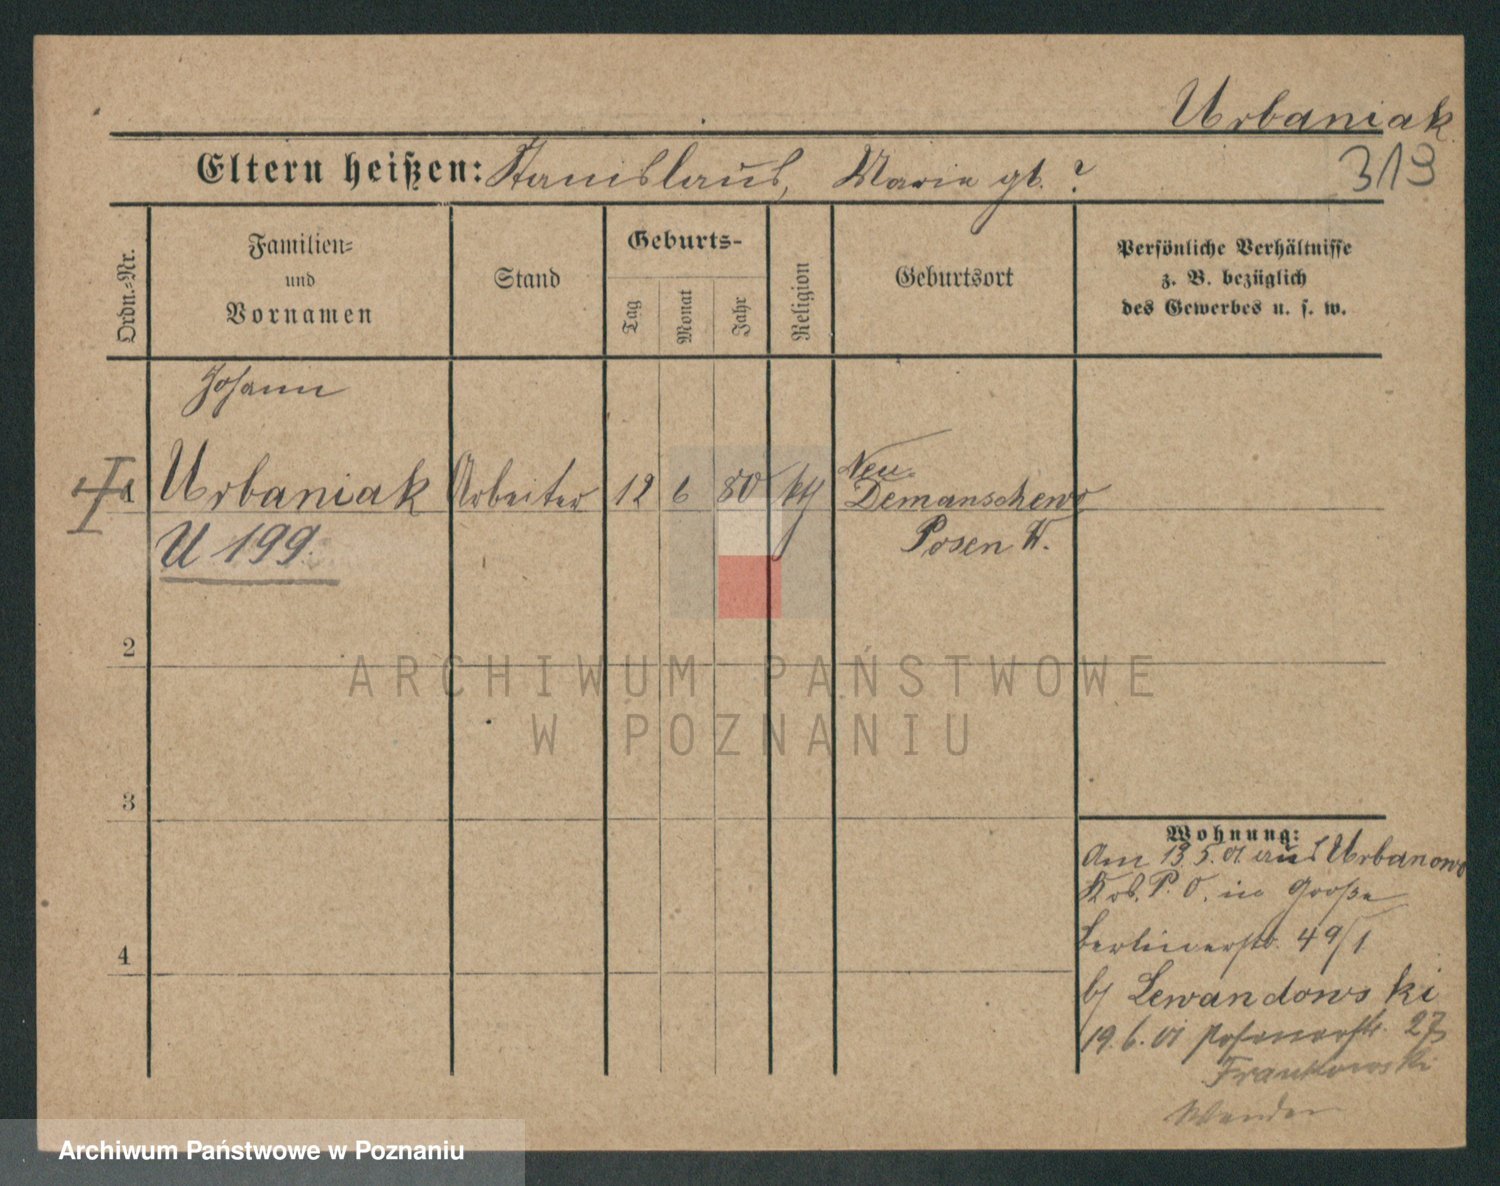 Urbaniak
Eltern heißen: Stanislaus, Marie gb. ?
319
Ordn.-Nr.
Familien-
und
Vornamen
Stand
Geburts-
Tag
Monat
Jahr
Religion
Geburtsort
Persönliche Verhältnisse
z. B. bezüglich
des Gewerbes u. s. w.
Johann
1 Urbaniak Arbeiter 12 6 80 kth
Neu
Demanschewo
Posen W.
U 199.
2
3
4
Wohnung:
Am 13.5.01 aus Urbanowo
Krs. P. O. in Große
Berlinerstr. 49/1
b/ Lewandowski
19.6.01 Posenerstr. 27
Frankowski
Wenden
ARCHIWUM PAŃSTWOWE
W POZNANIU
Archiwum Państwowe w Poznaniu